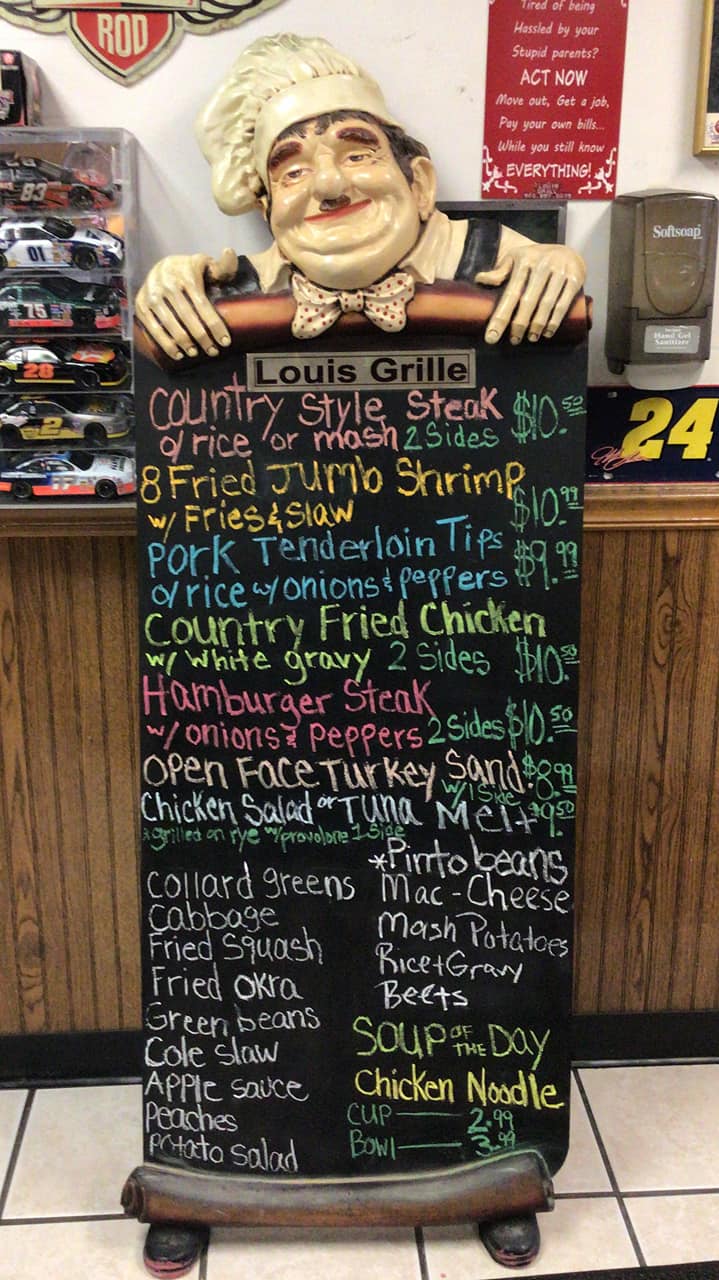 ROD
Tired of being
Hassled by your
Stupid parents?
ACT NOW
Move out, Get a job,
Pay your own bills...
While you still know
EVERYTHING!
Softsoap
Hand Gel
Sanitizer
83
01
75
28
2
24
Louis Grille
Country Style Steak $10.50
o/rice or mash 2 Sides
8 Fried Jumbo Shrimp
w/ Fries & Slaw $10.99
Pork Tenderloin Tips $9.99
o/rice w/onions & peppers
Country Fried Chicken
w/ white gravy 2 Sides $10.50
Hamburger Steak
w/onions & peppers 2 Sides $10.50
Open Face Turkey Sand. $8.99
w/1 Side
Chicken Salad or Tuna Melt $9.50
grilled on rye w/provolone 1 Side
*Pinto beans
Collard greens Mac-Cheese
Cabbage Mash Potatoes
Fried Squash Rice+Gravy
Fried Okra Beets
Green beans
Cole slaw
Apple sauce
Peaches
Potato salad
Soup of the Day
Chicken Noodle
Cup — 2.99
Bowl — 3.99